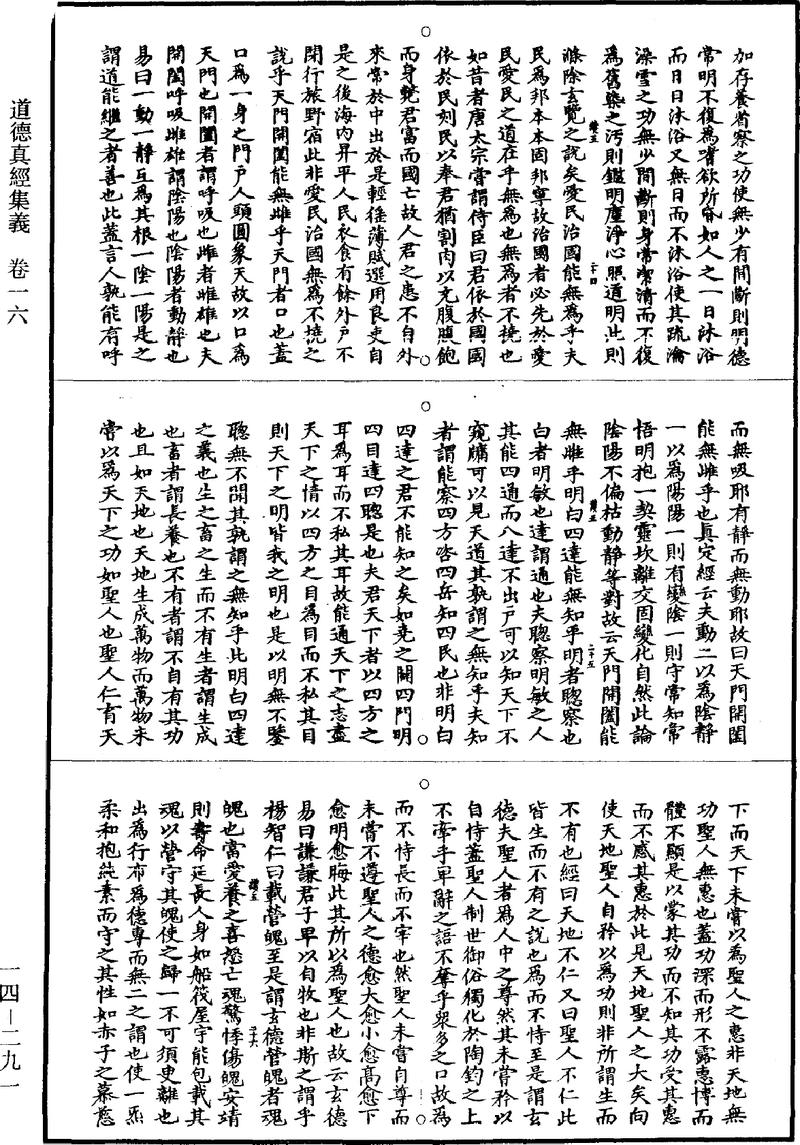 道德真經集義　卷一六
一四—二九一
加存養省察之功使無少有間斷則明德
常明不復為嗜欲所昏如人之一日沐浴
而日日沐浴又無日而不沐浴使其疏瀹
澡雪之功無少間斷則身常潔清而不復
為舊染之汚則鑑明塵淨心照道明此則
滌除玄覽之說矣愛民治國能無為乎夫
民為邦本本固邦寧故治國者必先於愛
民愛民之道在乎無為也無為者不撓也
如昔者唐太宗嘗謂侍臣曰君依於國國
依於民刻民以奉君猶割肉以充腹腹飽
而身斃君富而國亡故人君之患不自外
來常於中出於是輕徭薄賦選用良吏自
是之後海內昇平人民衣食有餘外戶不
閉行旅野宿此非愛民治國無為不撓之
說乎天門開闔能無雌乎天門者口也蓋
口為一身之門戶人頭圓象天故以口為
天門也開闔者謂呼吸也雌者雌雄也夫
開闔呼吸雌雄謂陰陽也陰陽者動靜也
易曰一動一靜互為其根一陰一陽是之
謂道能繼之者善也此蓋言人孰能有呼
而無吸耶有靜而無動耶故曰天門開闔
能無雌乎也真定經云夫動二以為陰靜
一以為陽陽一則有變陰一則守常知常
悟明抱一契靈坎離交固變化自然此論
陰陽不偏枯動靜等對故云天門開闔能
無雌乎明白四達能無知乎明者聰察也
白者明敏也達謂通也夫聰察明敏之人
其能四通而八達不出戶可以知天下不
窺牖可以見天道其孰謂之無知乎夫知
者謂能察四方咨四岳知四民也非明白
四達之君不能知之矣如堯之闢四門明
四目達四聰是也夫君天下者以四方之
耳為耳而不私其耳故能通天下之志盡
天下之情以四方之目為目而不私其目
則天下之明皆我之明也是以明無不鑒
聰無不聞其孰謂之無知乎此明白四達
之義也生之畜之生而不有生者謂生成
也畜者謂長養也不有者謂不自有其功
也且如天地也天地生成萬物而萬物未
嘗以為天下之功如聖人也聖人仁育天
下而天下未嘗以為聖人之惠非天地無
功聖人無惠也蓋功深而形不露惠博而
體不顯是以蒙其功而不知其功受其惠
而不感其惠於此見天地聖人之大矣向
使天地聖人自矜以為功則非所謂生而
不有也經曰天地不仁又曰聖人不仁此
皆生而不有之說也為而不恃至是謂玄
德夫聖人者為人中之尊然其未嘗矜以
自恃蓋聖人制世御俗獨化於陶鈞之上
不牽乎卑辭之語不奪乎眾多之口故為
而不恃長而不宰也然聖人未嘗自尊而
未嘗不遵聖人之德愈大愈小愈高愈下
愈明愈晦此其所以為聖人也故云玄德
易曰謙謙君子卑以自牧也非斯之謂乎
楊智仁曰載營魄至是謂玄德營魄者魂
魄也當愛養之喜怒亡魂驚悸傷魄安靖
則壽命延長人身如船筏屋宇能包載其
魂以營守其魄使之歸一不可須臾離也
出為行布為德專而無二之謂也使一炁
柔和抱純素而守之其性如赤子之慕慈